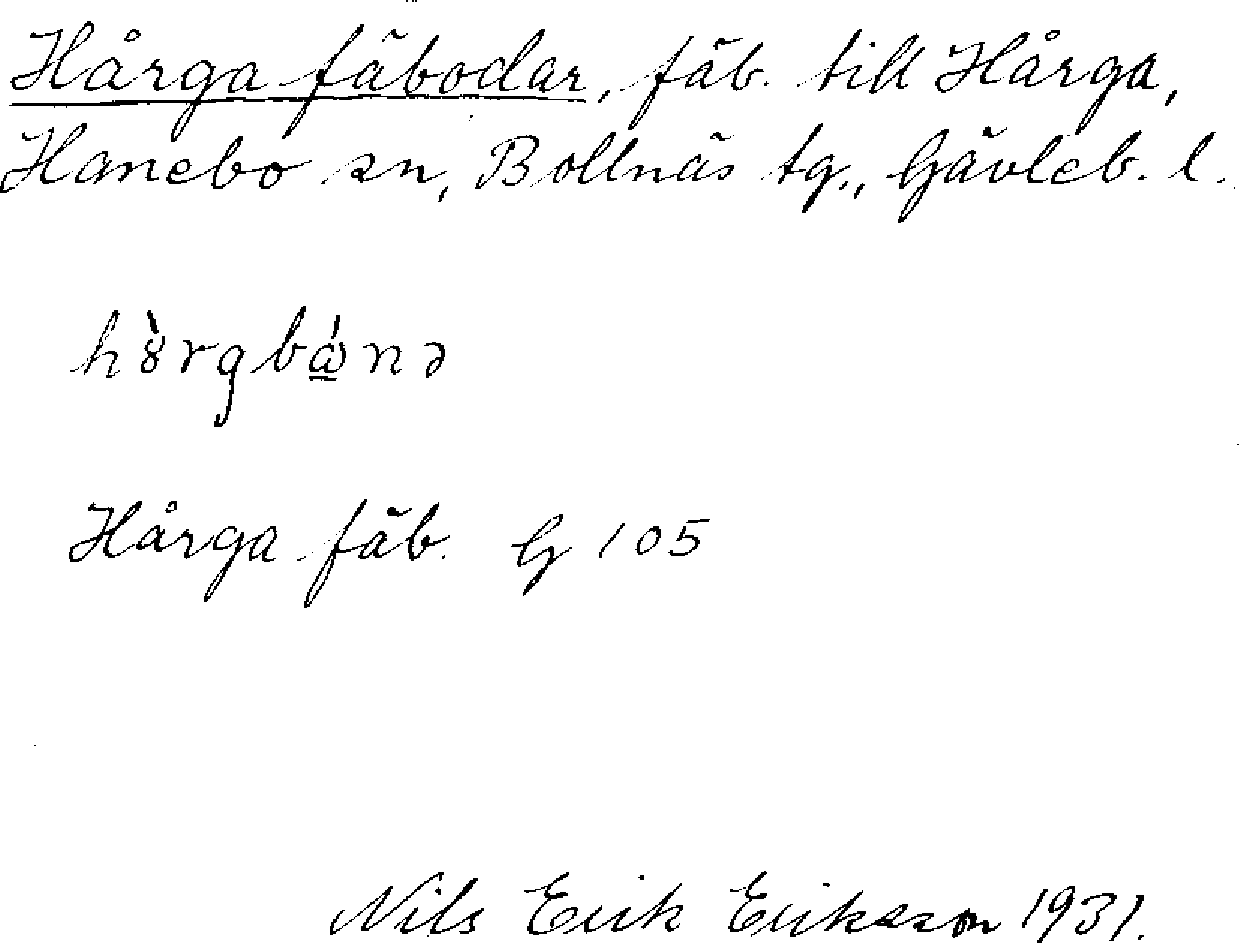 Hårga fäbodar, fäb. till Hårga,
Hanebo sn, Bollnäs tg., Gävleb. l.
Hårga fäb. G 105
Nils Erik Eriksson 1931.